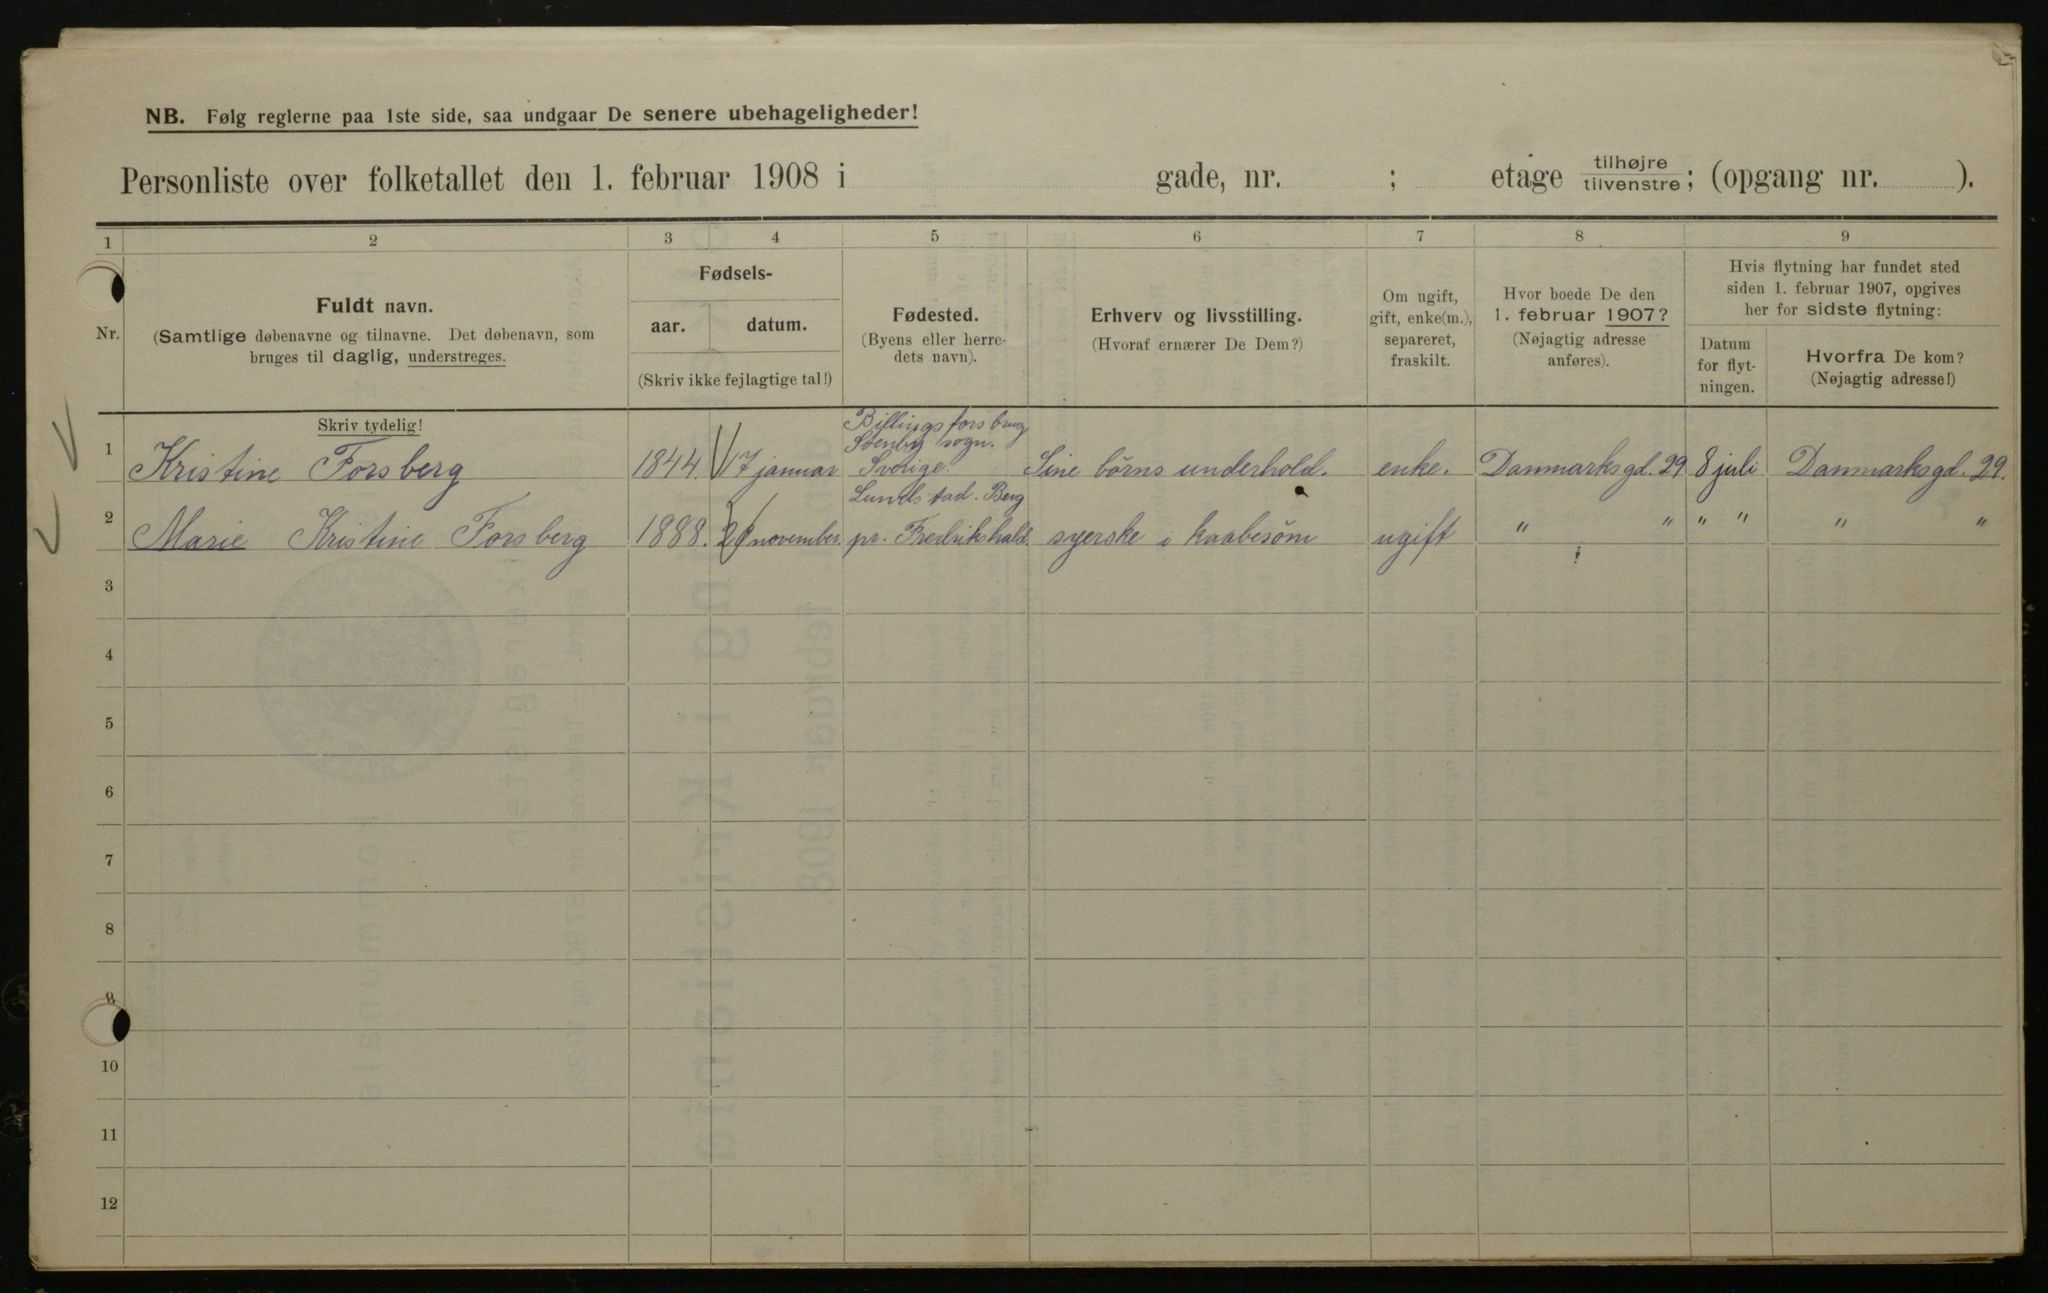 NB. Følg reglerne paa 1ste side, saa undgaar De senere ubehageligheder!
Personliste over folketallet den 1. februar 1908 i gade, nr. ; etage tilhøjre/tilvenstre; (opgang nr. ).
1 2 3 4 5 6 7 8 9
Nr.
Fuldt navn.
(Samtlige døbenavne og tilnavne. Det døbenavn, som
bruges til daglig, understreges.
Skriv tydelig!
Fødsels-
aar. datum.
(Skriv ikke fejlagtige tal!)
Fødested.
(Byens eller herre-
dets navn).
Erhverv og livsstilling.
(Hvoraf ernærer De Dem?)
Om ugift,
gift, enke(m.),
separeret,
fraskilt.
Hvor boede De den
1. februar 1907?
(Nøjagtig adresse
anføres).
Hvis flytning har fundet sted
siden 1. februar 1907, opgives
her for sidste flytning:
Datum
for flyt-
ningen.
Hvorfra De kom?
(Nøjagtig adresse!)
Billingsfors brug
Stenby sogn.
1 Kristine Forsberg 1844. 17 januar Sverige. Sine börns underhold. enke. Danmarksgd. 29 8 juli Danmarksgd. 29.
Lundstad. Berg
2 Marie Kristine Forsberg 1888. november. pr. Fredrikshald. syerske i kaabesöm ugift " " " " " "
3
4
5
6
7
8
9
10
11
12